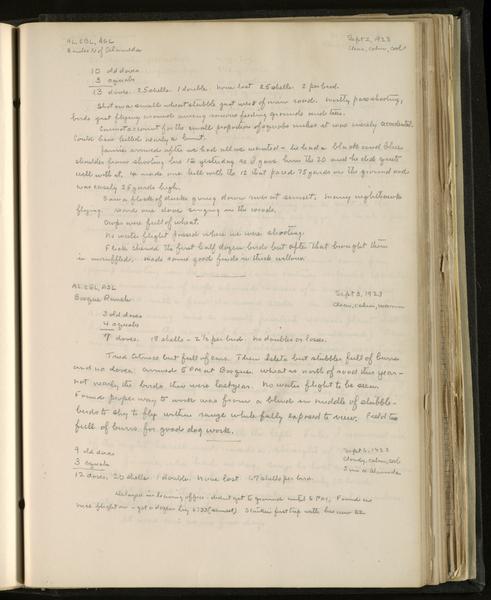 AL, CBL, ASL Sept 2, 1923
Bosque N of Alameda Clear, calm, cool
10 old doves
3 squabs
13 doves. 25 shells. 1 double. none lost 25 shells. 2 per bird.
Shot on a small wheat stubble just west of main road. Mostly pass shooting,
birds just flying around among various feeding grounds and trees.
Cannot account for the small proportion of squabs unless it was merely accidental.
Could have killed nearly a limit.
arrived after we had all we wanted - he had a black and blue
shoulder from shooting his 12 yesterday so I gave him the 20 and he did quite
well with it. made one kill with the 12 that paced 75 yards on the ground and
was easily 25 yards high.
Saw a flock of ducks going down river at sunset. Many nighthawks
flying. Heard one dove singing in the woods.
Crops were full of wheat.
No water flight passed where we were shooting.
Flick chewed the first half dozen birds but after that brought them
in unruffled. Made some good finds in thick willows.
AL, CBL, ASL Sept 3, 1923
Bosque Ranch Clear, calm, warm
3 old doves
4 squabs
7 doves. 18 shells - 2½ per bird. no doubles or losses.
Tried but full of cars. Then Isleta but stubbles full of burrs
and no doves. Arrived 5 PM at Bosque. Wheat is north of road this year -
not nearly the birds there were last year. No water flight to be seen.
Found proper way to work was from a blind in middle of stubble -
birds too shy to flip within range while fully exposed to view. Field too
full of burrs for good dog work.
9 old doves Sept 6, 1923
3 squabs Cloudy, calm, cool
12 doves, 20 shells. 1 double. None lost. 1.7 shells per bird.
Delayed in leaving office - didn't get to ground until 5 PM. Found
nice flight on - got a dozen by 6:33 (sunset). first trip with his new 22